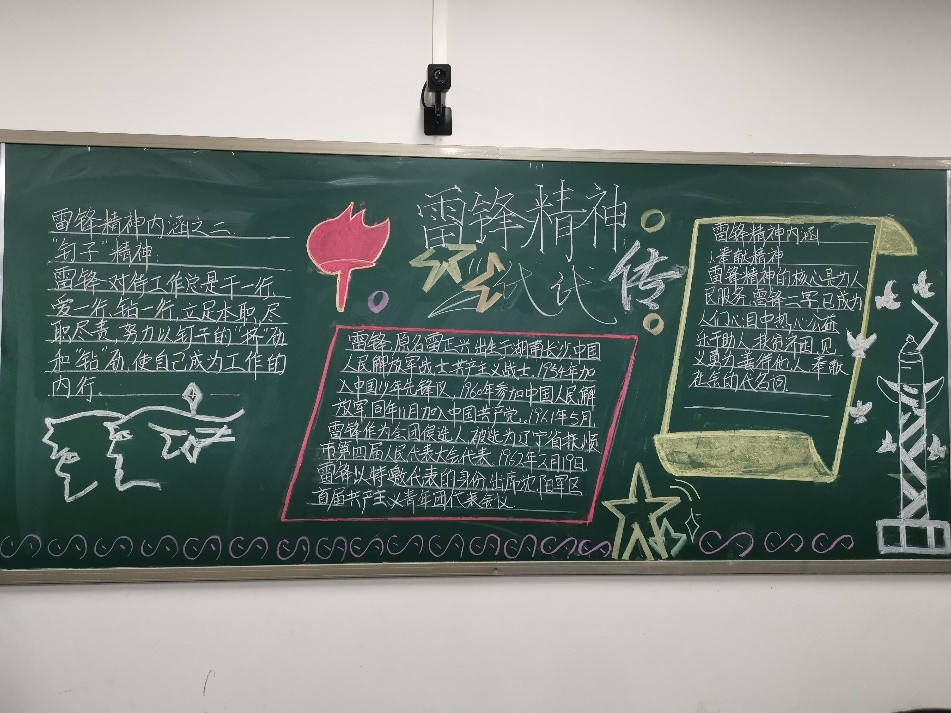 雷锋精神内涵之二
"钉子"精神:
雷锋对待工作总是干一行,
爱一行,钻一行,立足本职,尽
职尽责,努力以钉子的"挤"劲
和"钻"劲,使自己成为工作的
内行.
雷锋精神
代代传
雷锋,原名雷正兴,出生于湖南长沙,中国
人民解放军战士,共产主义战士,1954年加
入中国少年先锋队,1960年参加中国人民解
放军,同年11月加入中国共产党.1961年5月,
雷锋作为全团候选人,被选为辽宁省抚顺
市第四届人民代表大会代表.1962年2月19日,
雷锋以特邀代表的身份,出席沈阳军区
首届共产主义青年团代表会议.
雷锋精神内涵
1.奉献精神
雷锋精神的核心是为人
民服务,雷锋二字已成为
人们心目中热心公益,
乐于助人,扶贫济困,见
义勇为,善待他人,奉献
社会的代名词